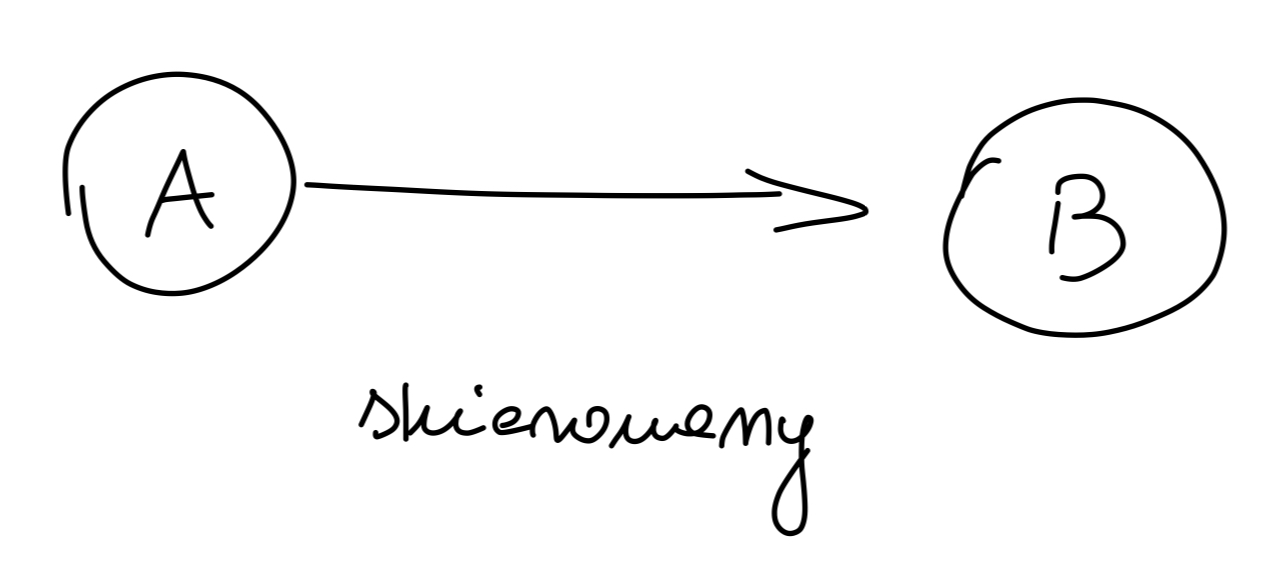 A B
skierowany